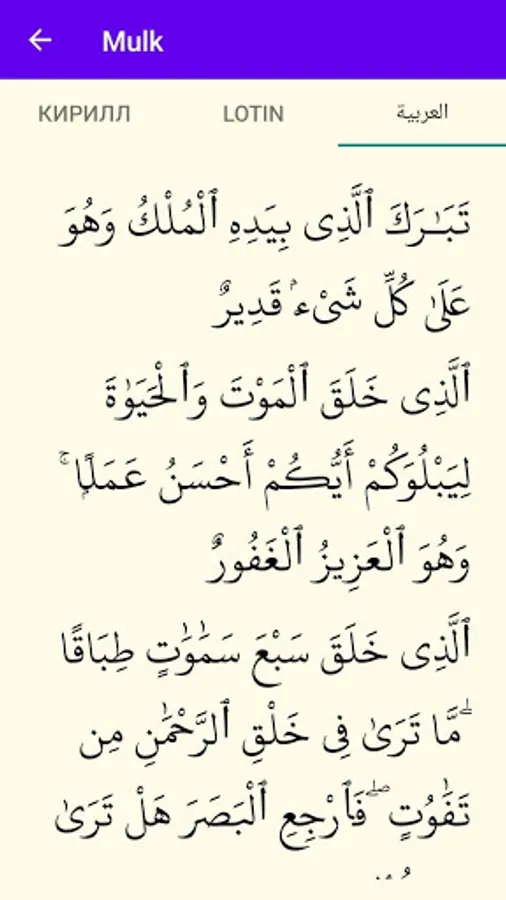 Mulk
КИРИЛЛ
LOTIN
العربية
تَبَـٰرَكَ ٱلَّذِى بِيَدِهِ ٱلْمُلْكُ وَهُوَ
عَلَىٰ كُلِّ شَىْءٍۢ قَدِيرٌ
ٱلَّذِى خَلَقَ ٱلْمَوْتَ وَٱلْحَيَوٰةَ
لِيَبْلُوَكُمْ أَيُّكُمْ أَحْسَنُ عَمَلًۭا ۚ
وَهُوَ ٱلْعَزِيزُ ٱلْغَفُورُ
ٱلَّذِى خَلَقَ سَبْعَ سَمَـٰوَٰتٍ طِبَاقًا
ۖ مَّا تَرَىٰ فِى خَلْقِ ٱلرَّحْمَـٰنِ مِن
تَفَـٰوُتٍ ۖ فَٱرْجِعِ ٱلْبَصَرَ هَلْ تَرَىٰ